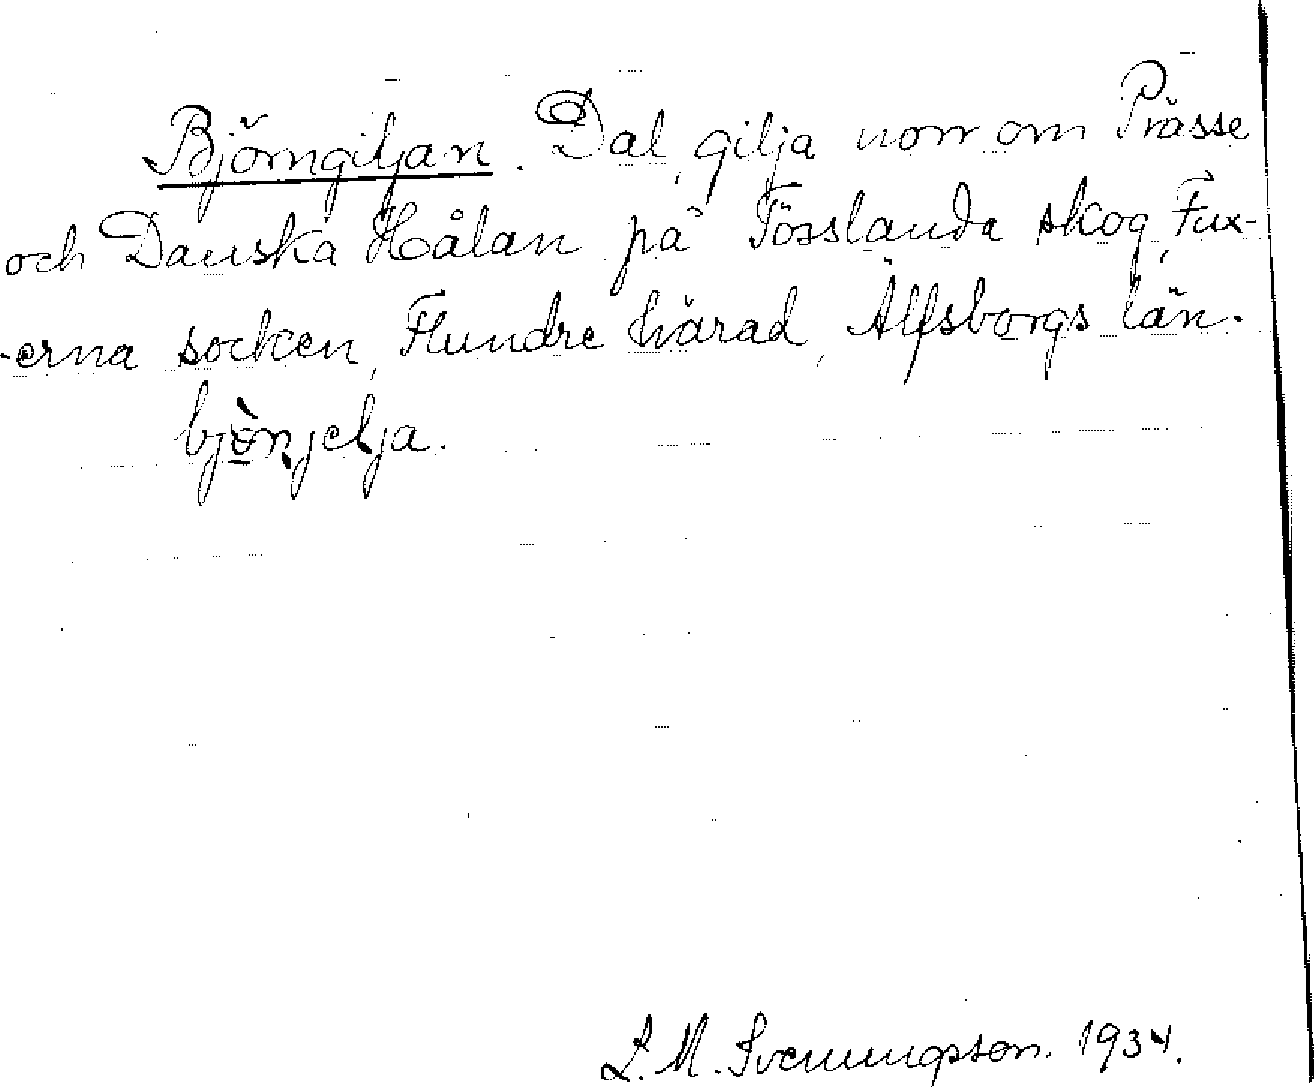 Björngiljan. Dal, gilja norr om Prässe
och Danska Hålan på Tösslanda skog, Fux-
-erna socken, Flundre härad, Älfsborgs län.
bjönjelja.
L. M. Svenungsson. 1934.